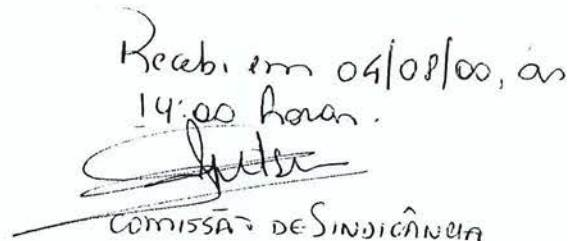 Recebi em 04/08/00, às
14:00 horas.
COMISSÃO DE SINDICÂNCIA